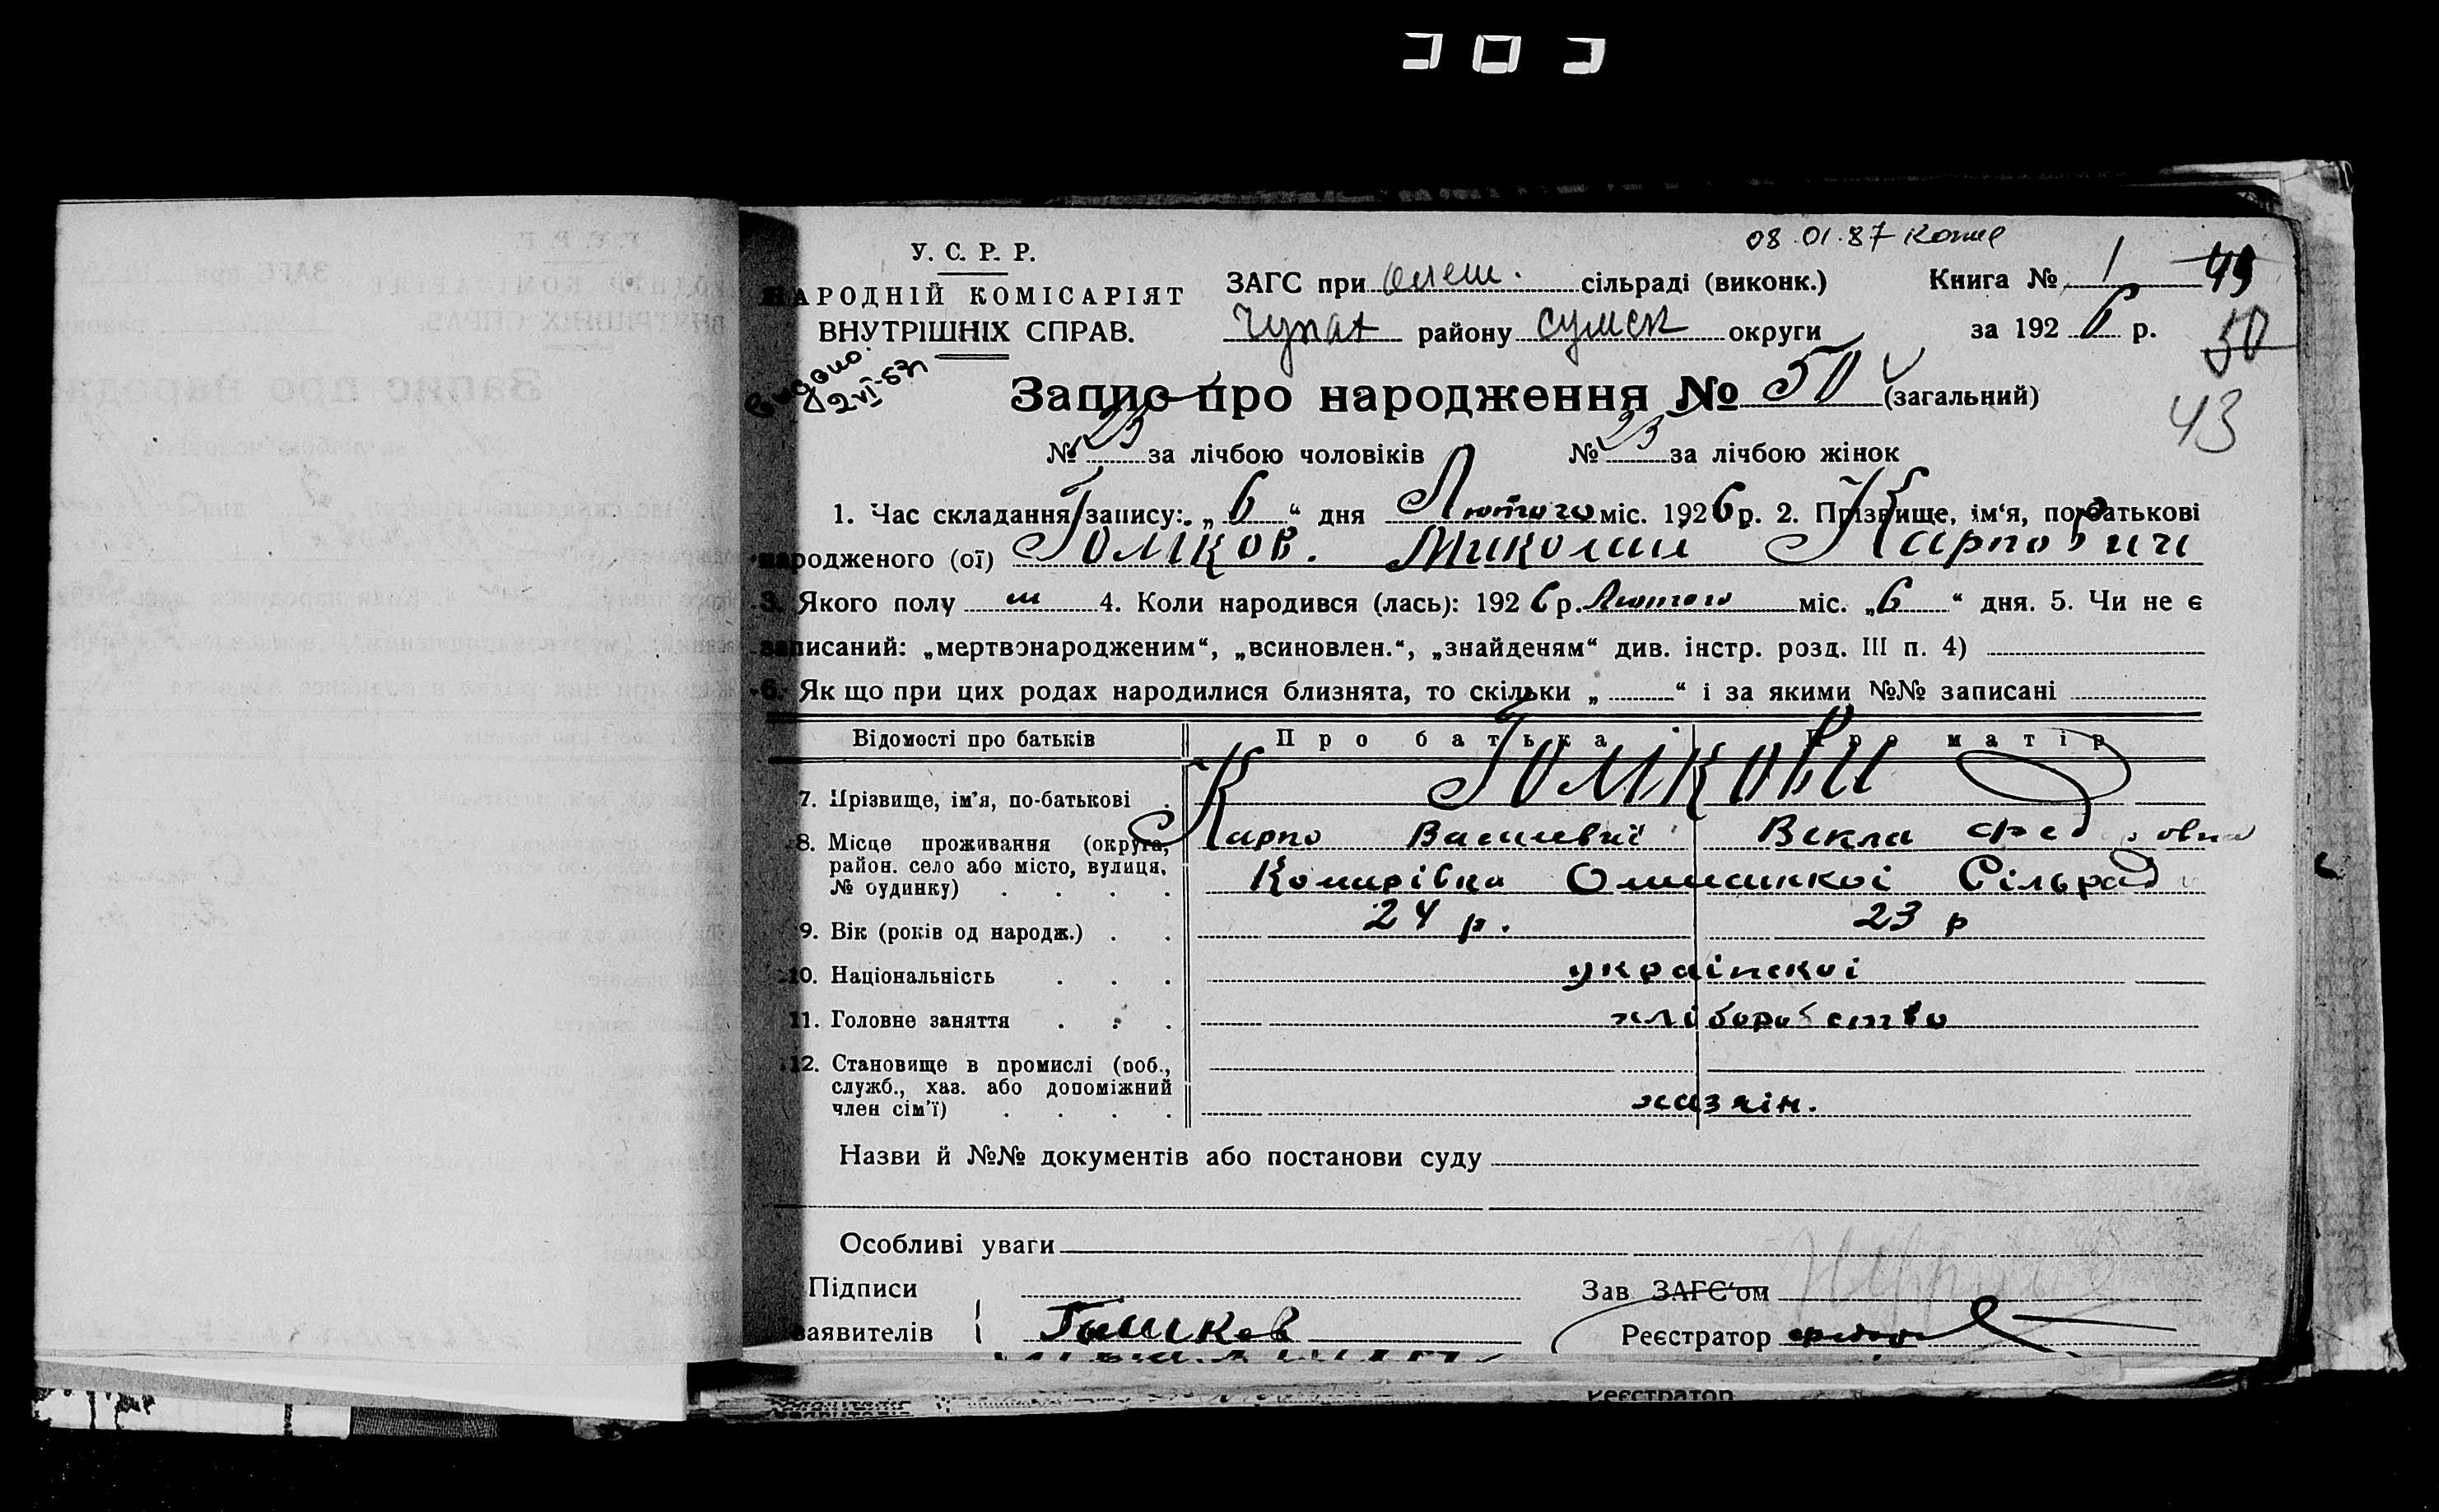 08.01.87 копія
У. С. Р. Р.
НАРОДНІЙ КОМІСАРІЯТ
ВНУТРІШНІХ СПРАВ.
ЗАГС при Олеш. сільраді (виконк.)
Чупах району Сумск округи
Книга № 1
за 1926 р.
49
50
43
Видано
2 VI-53
Запис про народження № 50 (загальний)
№ 23 за лічбою чоловіків № 23 за лічбою жінок
1. Час складання запису: „ 6 “ дня Лютого міс. 1926 р. 2. Прізвище, ім‘я, по-батькові
народженого (ої) Гомков. Миколай Карпович
3. Якого полу м 4. Коли народився (лась): 1926 р. Лютого міс. „6“ дня. 5. Чи не є
записаний: „мертвонародженим“, „всиновлен.“, „знайденям“ див. інстр. розд. III п. 4)
6. Як що при цих родах народилися близнята, то скільки „ “ і за якими №№ записані
Відомості про батьків Про батька Про матір
7. Прізвище, ім’я, по-батькові Гомкови
Карпо Васильевич Векла Фед овна
8. Місце проживання (округа, район. село або місто, вулиця, № будинку) Комарівка Сільрад
9. Вік (років од народж.) 24 р. 23 р
10. Національність украінскоі
11. Головне заняття хліборобство
12. Становище в промислі (роб., служб., хаз. або допоміжний член сім’ї) хазяін.
Назви й №№ документів або постанови суду
Особливі уваги
Підписи
заявителів
Зав ЗАГС‘ом
Реєстратор
Реєстратор